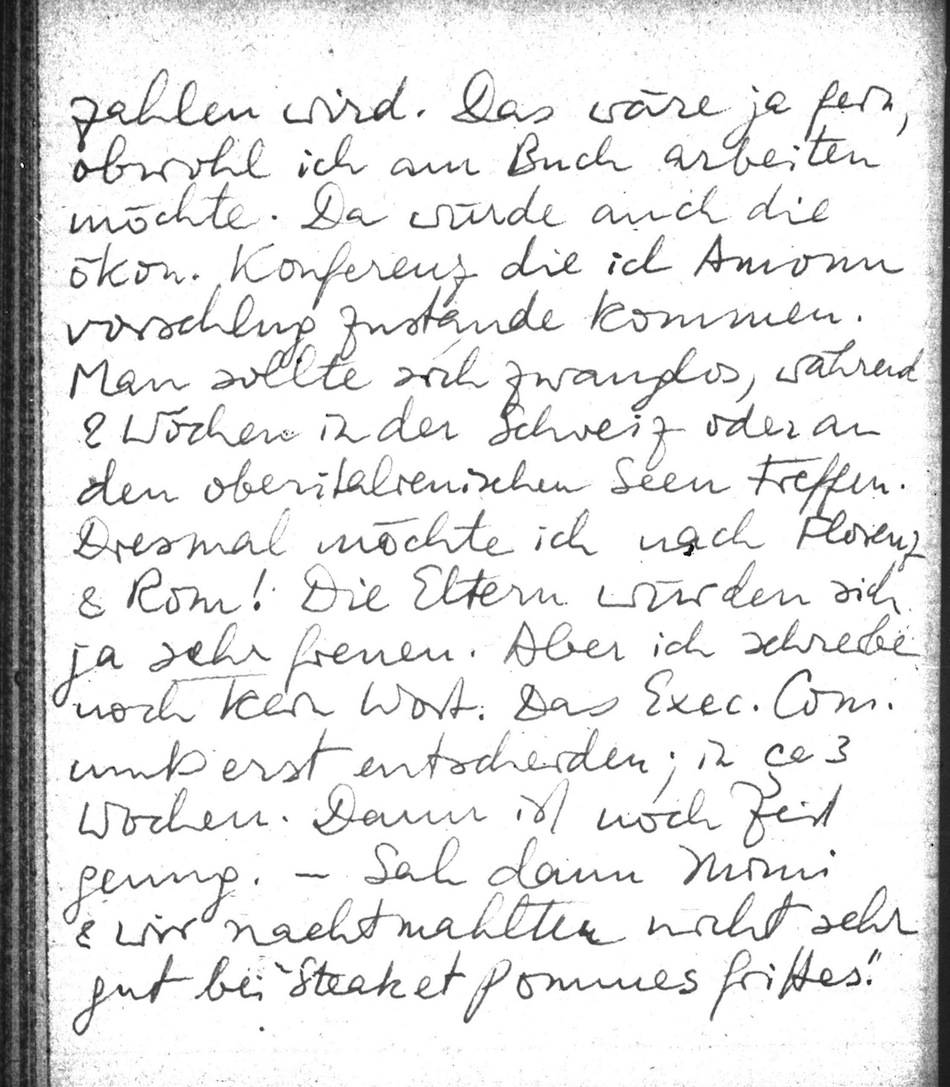 zahlen wird. Das wäre ja fein,
obwohl ich am Buch arbeiten
möchte. Da würde auch die
ökon. Konferenz die ich Amonn
vorschlug zustande kommen.
Man sollte sich zwanglos, während
2 Wochen in der Schweiz oder an
den oberitalienischen Seen treffen.
Diesmal möchte ich nach Florenz
& Rom! Die Eltern würden sich
ja sehr freuen. Aber ich schreibe
noch kein Wort. Das Exec. Com.
muß erst entscheiden; in ca 3
Wochen. Dann ist noch Zeit
genug. – Sah dann Mimi
& wir nachtmahlten nicht sehr
gut bei "Steak et pommes frittes".